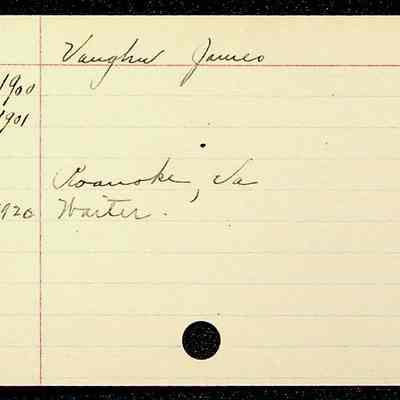 Vaughn James
1900
1901
Roanoke, Va
1920 Waiter.